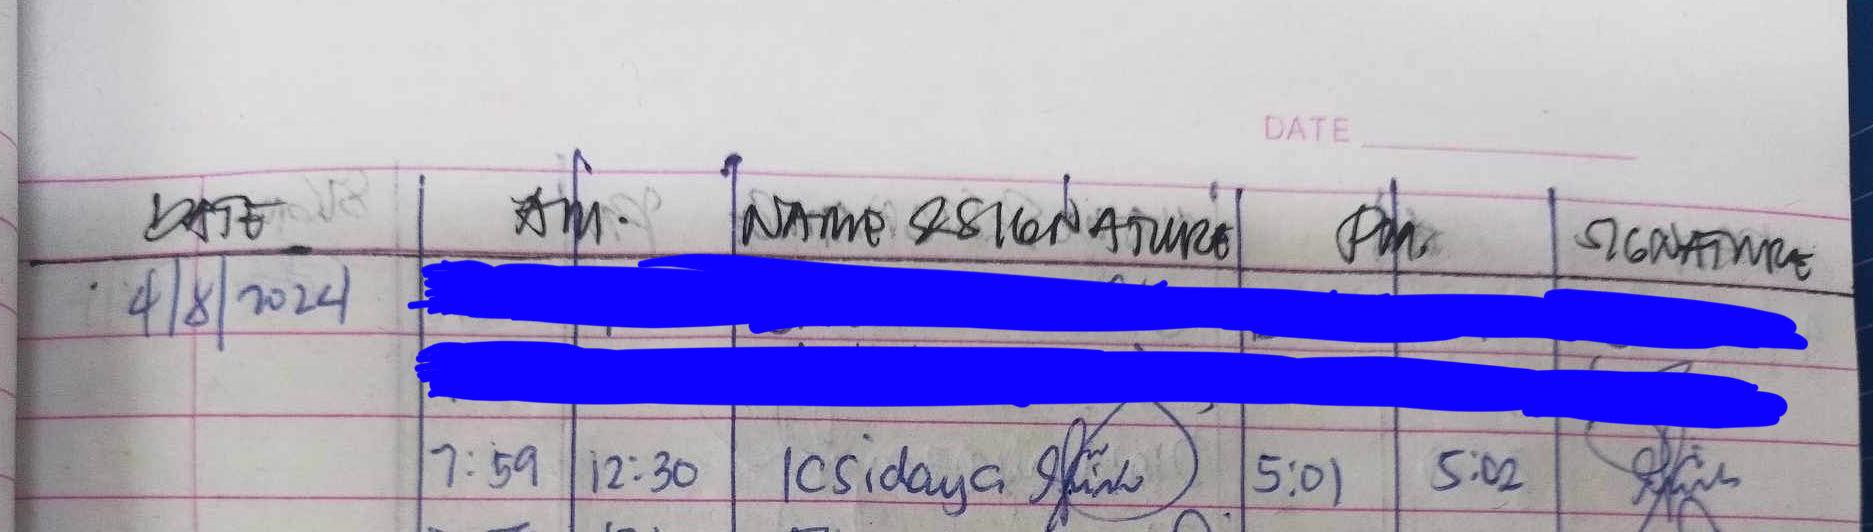 DATE
DATE AM. NAME & SIGNATURE PM. SIGNATURE
4/8/2024
7:59 12:30 ICSidaya 5:01 5:02